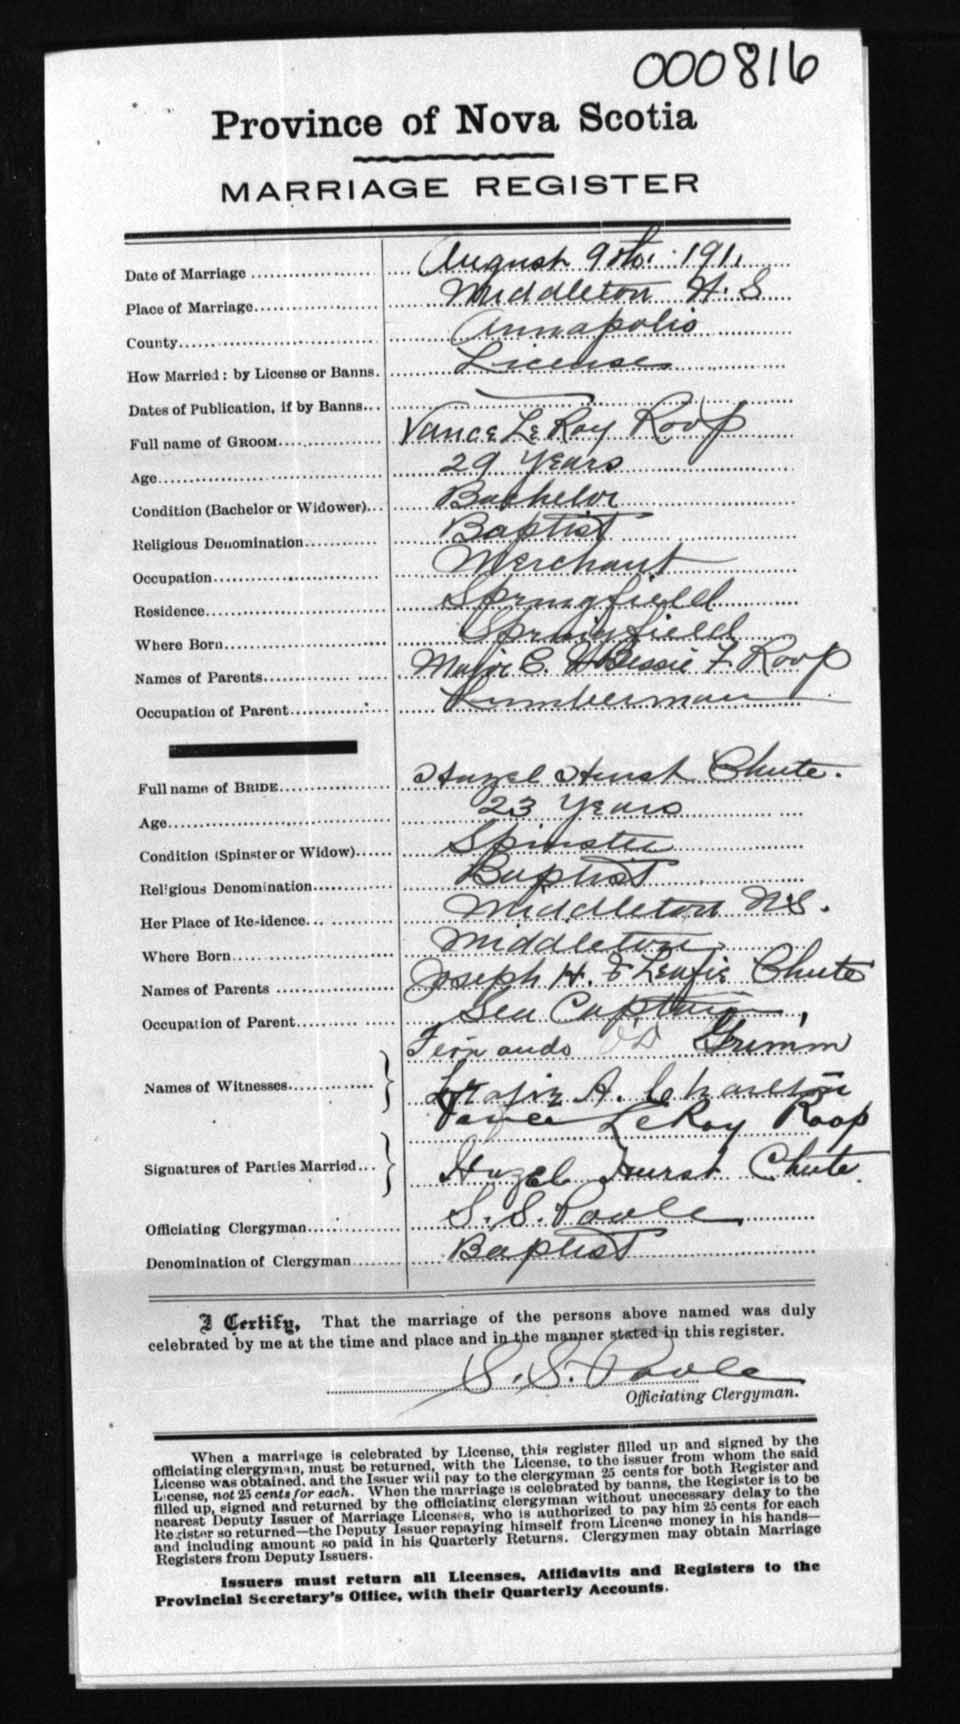 000816
Province of Nova Scotia
MARRIAGE REGISTER
Date of Marriage August 9th. 1911
Place of Marriage Middleton N.S
County Annapolis
How Married: by License or Banns. License
Dates of Publication, if by Banns
Full name of GROOM Vance LeRoy Roop
Age 29 Years
Condition (Bachelor or Widower) Bachelor
Religious Denomination Baptist
Occupation Merchant
Residence Springfield
Where Born Springfield
Names of Parents C. Bessie F. Roop
Occupation of Parent Lumberman
Full name of BRIDE Hazel Hurst Chute.
Age 23 Years
Condition (Spinster or Widow) Spinster
Religious Denomination Baptist
Her Place of Residence Middleton N.S.
Where Born Middleton
Names of Parents Joseph H. & Chute
Occupation of Parent Sea Captain
Names of Witnesses Grimm
A. Charlton
Signatures of Parties Married Vance LeRoy Roop
Hazel Hurst Chute.
Officiating Clergyman S. S. Poole
Denomination of Clergyman Baptist
I Certify, That the marriage of the persons above named was duly
celebrated by me at the time and place and in the manner stated in this register.
S. S. Poole
Officiating Clergyman.
When a marriage is celebrated by License, this register filled up and signed by the
officiating clergyman, must be returned, with the License, to the issuer from whom the said
License was obtained, and the Issuer will pay to the clergyman 25 cents for both Register and
License, not 25 cents for each. When the marriage is celebrated by banns, the Register is to be
filled up, signed and returned by the officiating clergyman without unnecessary delay to the
nearest Deputy Issuer of Marriage Licenses, who is authorized to pay him 25 cents for each
Register so returned—the Deputy Issuer repaying himself from License money in his hands—
and including amount so paid in his Quarterly Returns. Clergymen may obtain Marriage
Registers from Deputy Issuers.
Issuers must return all Licenses, Affidavits and Registers to the
Provincial Secretary's Office, with their Quarterly Accounts.